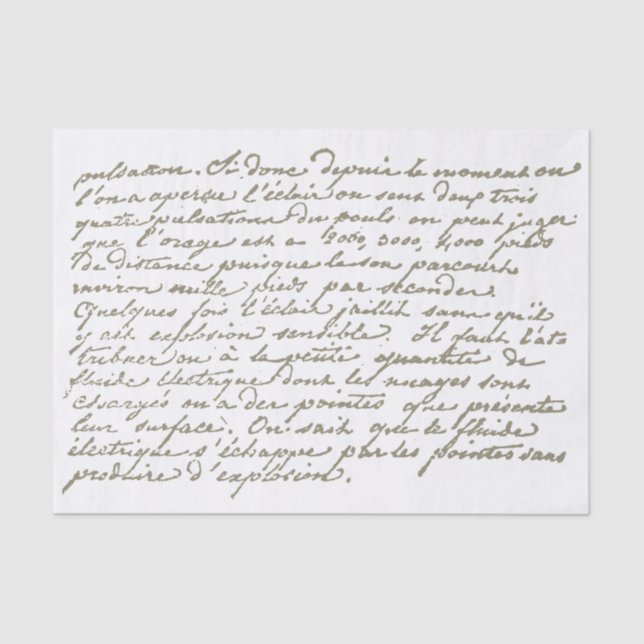 pulsation. Si donc depuis le moment ou
l'on a aperçu l'éclair on sent deux trois
quatre pulsations du pouls on peut juger
que l'orage est a 2000, 3000, 4,000 pieds
de distance puisque le son parcourt
environ mille pieds par seconde.
Quelques fois l'éclair jaillit sans qu'il
y ait explosion sensible. Il faut l'at-
tribuer ou à la petite quantité de
fluide électrique dont les nuages sont
chargés ou a des pointes que présente
leur surface. On sait que le fluide
électrique s'échappe par les pointes sans
produire d'explosion.